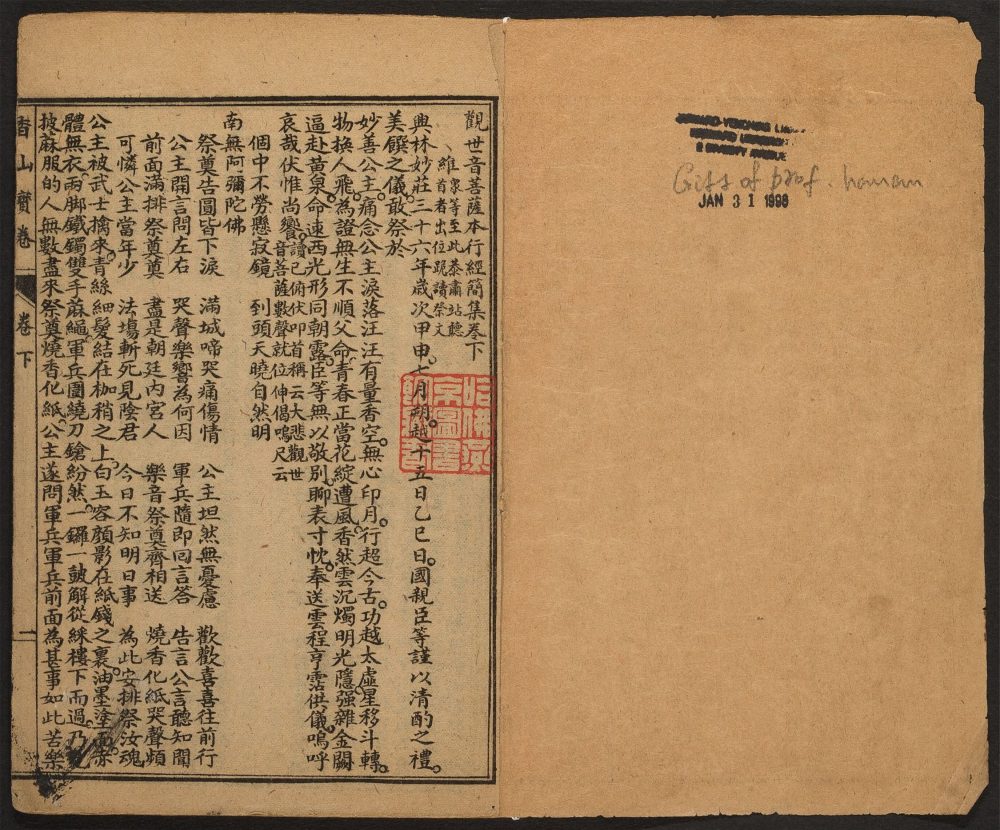 觀世音菩薩本行經簡集卷下
維衆等至此恭肅站聽
首者出位跪讀祭文
興林妙莊三十六年歲次甲申七月朔越十五日乙巳日國親臣等謹以清酌之禮
美饌之儀敢祭於
妙善公主痛念公主淚落汪汪有量香空無心印月行超今古功越太虛星移斗轉
物換人飛為證無生不順父命青春正當花綻遭風香然雲沉燭明光隱强離金闕
逼赴黃泉命速西光形同朝露臣等無以敬別聊表寸忱奉送雲程亨霑供儀嗚呼
哀哉伏惟尚饗
讀已俯伏叩首稱云大悲觀世
音菩薩數聲就位伸偈鳴尺云
個中不勞懸寂鏡 到頭天曉自然明
南無阿彌陀佛
祭奠告圓皆下淚 滿城啼哭痛傷情 公主坦然無憂慮 歡歡喜喜往前行
公主開言問左右 哭聲樂響為何因 軍兵隨即回言答 告言公言聽知聞
前面滿排祭奠奠 盡是朝廷內宮人 樂音祭奠齊相送 燒香化紙哭聲頻
可憐公主當年少 法場斬死見陰君 今日不知明日事 為此安排祭汝魂
公主被武士擒來青絲細髮結在枷稍之上白玉容顏影在紙錢之裏油墨塗面赤
體無衣兩脚鐵鐲雙手蔴繩軍兵圍繞刀鎗紛然一鑼一皷解從綵樓下而過乃
披蔴服的人無數盡來祭奠燒香化紙公主遂問軍兵軍兵前面為甚事如此苦樂
香山寶卷
卷下
一
哈佛燕
京圖書
Gift of prof.
JAN 31 1998